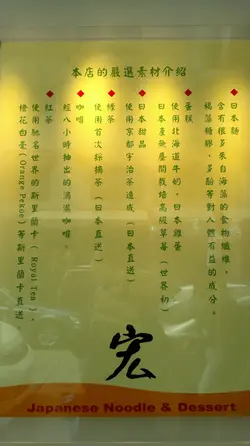 本店的嚴選素材介紹
◆日本麵
含有很多來自海藻的食物纖維，
褐藻糖膠，多酚等對人體有益的成分。
◆蛋糕
使用北海道牛奶，日本雞蛋
日本產夜晝間栽培高級草莓（世界初）
◆日本甜品
使用京都宇治茶造成（日本直送）
◆綠茶
使用首次採摘茶（日本直送）
◆咖啡
經八小時抽出的滴濾咖啡。
◆紅茶
使用馳名世界的斯里蘭卡（Royal Tea），
橙花白毫（Orange Pekoe）等斯里蘭卡直送
宏
Japanese Noodle & Dessert